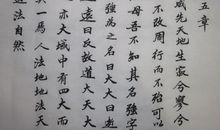 五章
成先天地生寂兮寥兮
不改周行而不殆可以
母吾不知其名強字
強為之名曰大大曰逝
遠曰反故道大天大
亦大域中有四大而
其一焉人法地地法天
道法自然